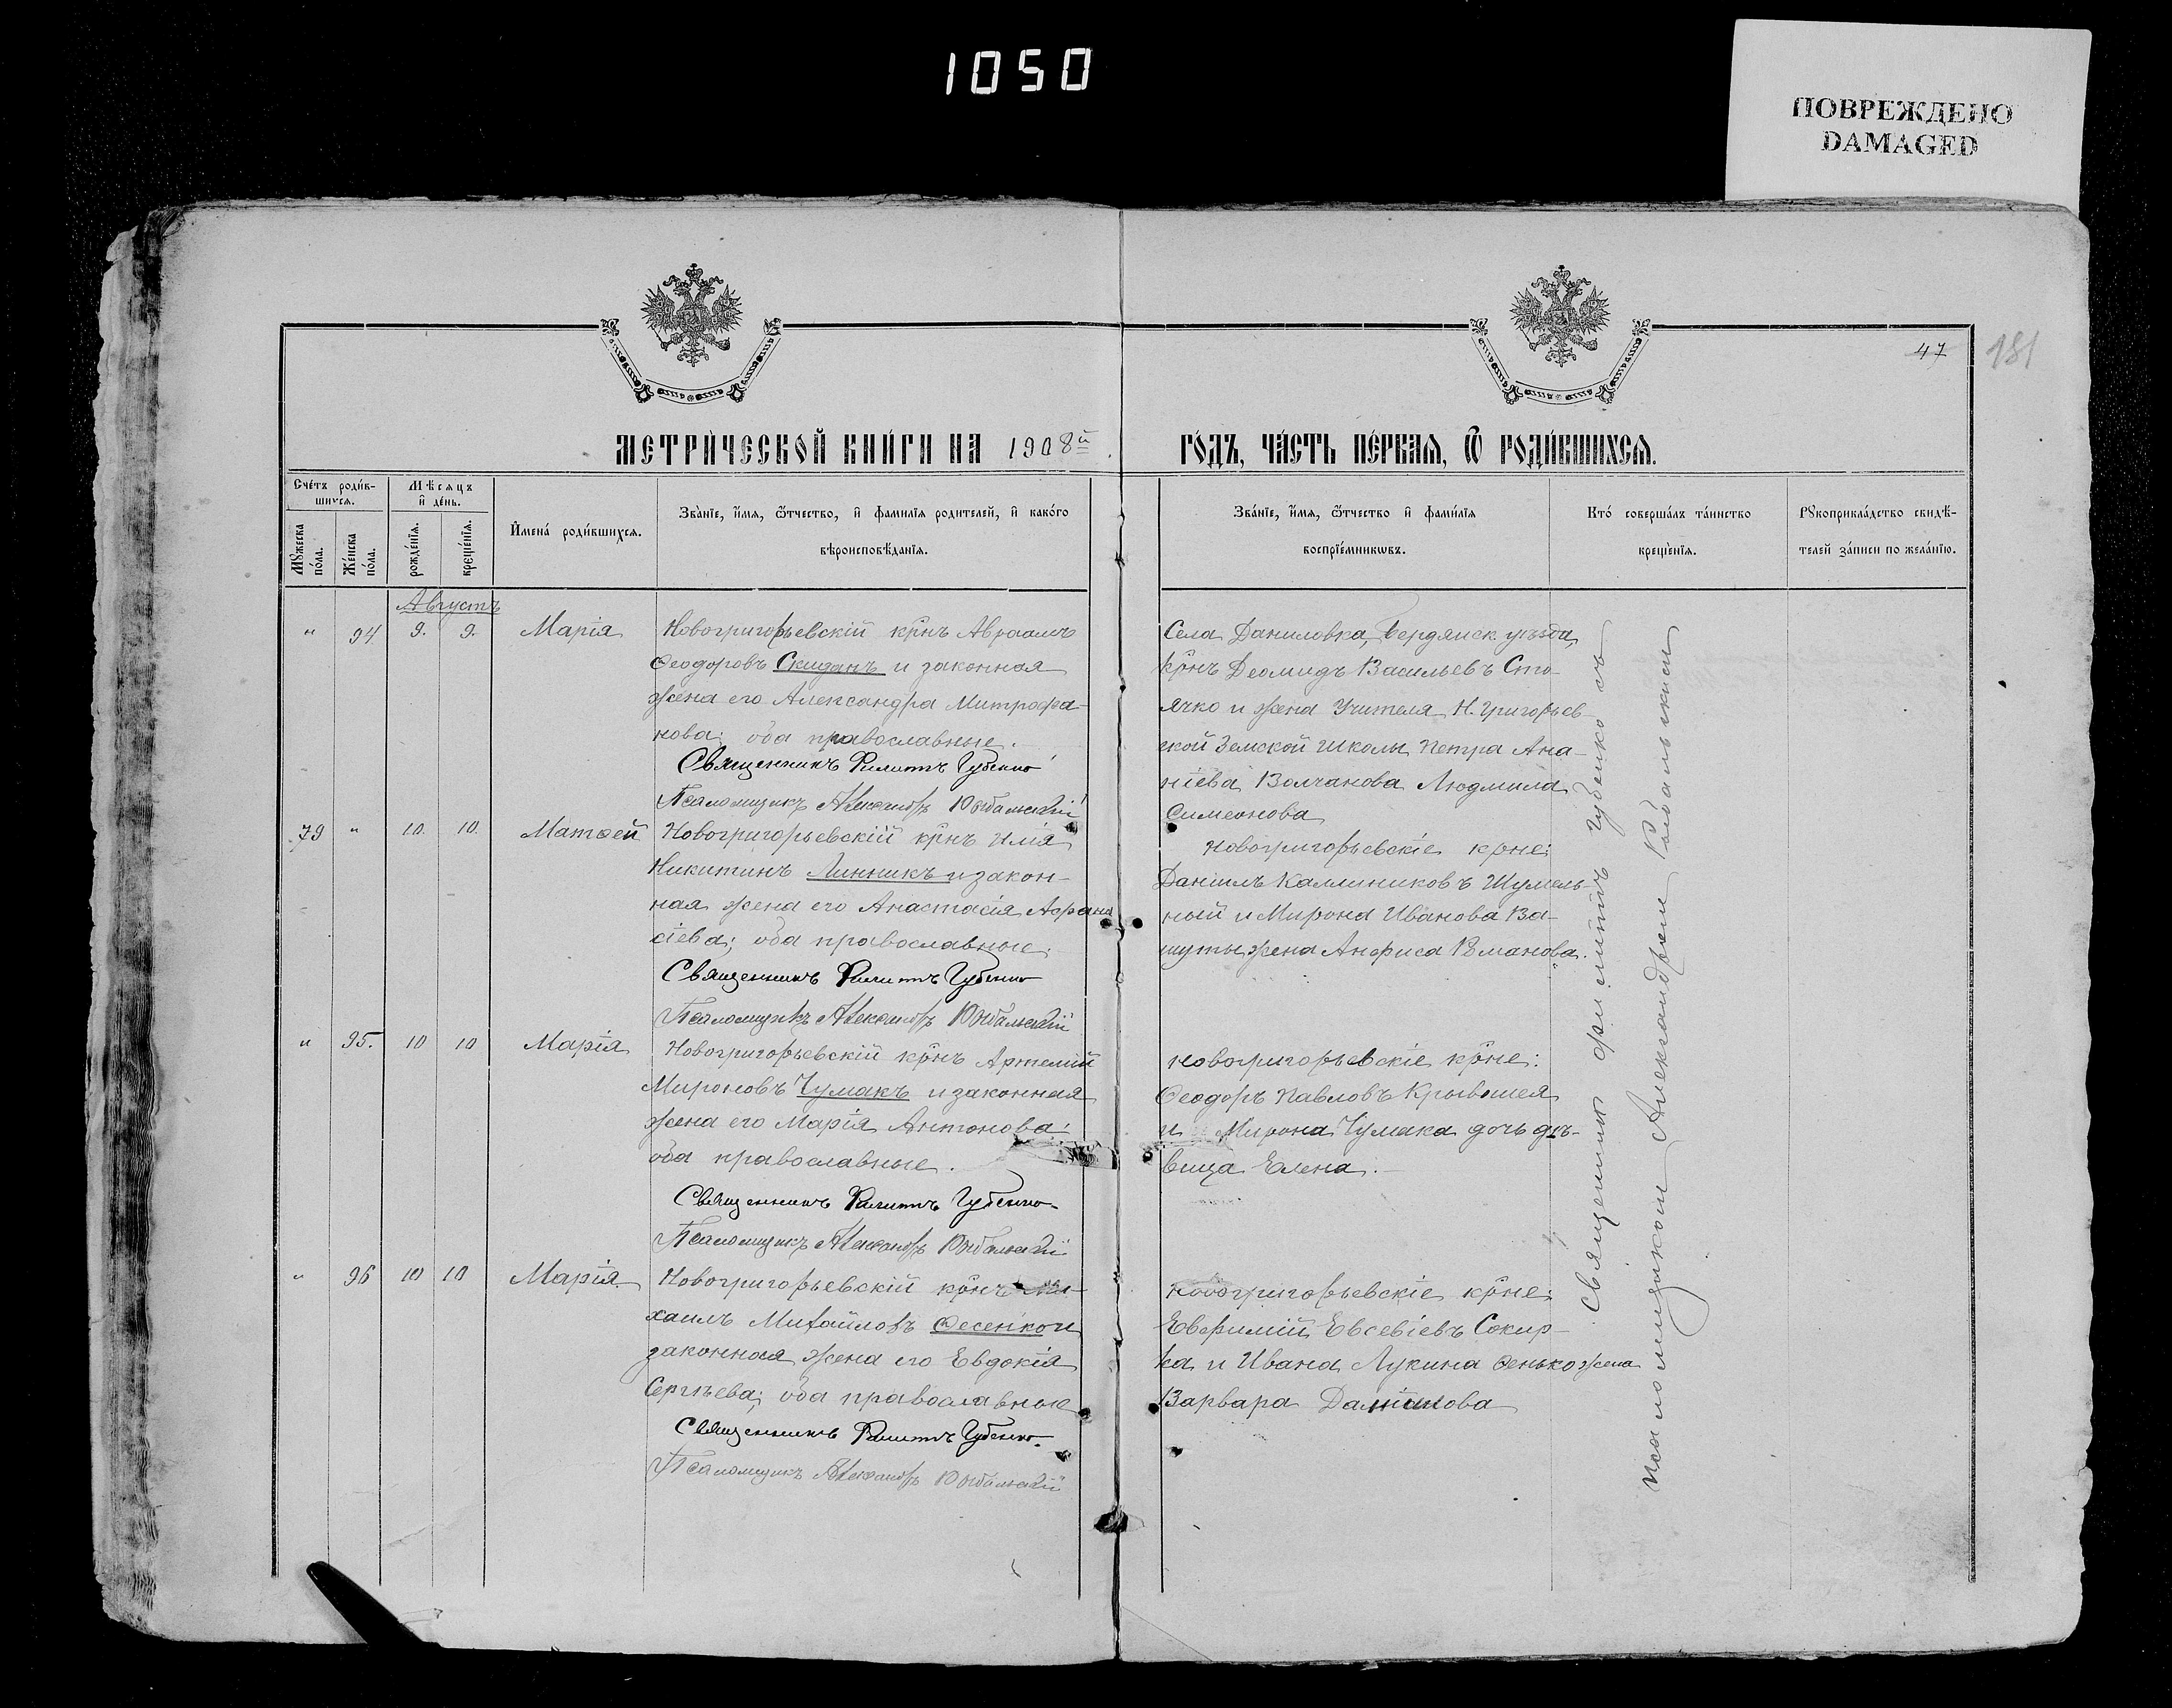 1050
ПОВРЕЖДЕНО
DAMAGED
47
181
МЕТРИ́ЧЕСКОЙ КНИ́ГИ НА 1908й
ГО́ДЪ, ЧА́СТЬ ПЕ́РВАѦ, Ѿ РОДИ́ВШИХСѦ.
Сче́тъ роди́в-
шихсѧ.
Мꙋжеска по́ла.
Же́нска по́ла.
Мѣ́сѧцъ
и҆ де́нь.
рожде́нїѧ.
креще́нїѧ.
И҆мена̀ роди́вшихсѧ.
Зва́нїе, и҆́мѧ, ѻ҆́тчество, и҆ фами́лїѧ роди́телей, и҆ како́гѡ
вѣроисповѣ́данїѧ.
Зва́нїе, и҆́мѧ, ѻ҆́тчество и҆ фами́лїѧ
воспрїе́мникѡвъ.
Кто̀ соверша́лъ та́инство
креще́нїѧ.
Рꙋкоприкла́дство свидѣ́-
телей за́писи по жела́нїю.
Августъ
" 94 9. 9. Марія
Новогригорьевскій крнъ Авраамъ
Ѳеодоровъ Скиданъ и законная
жена его Александра Митрофа-
нова; оба православные.
Священникъ Филиппъ Губенко
Псаломщикъ Александръ
Села Даниловка, Бердянск. уѣзда,
крнъ Деомидъ Васильевъ Сто-
ячко и жена Учителя Н. Григорьев-
ской Земской школы Петра Ана-
ніева Волчанова Людмила
Симеонова
79 " 10. 10. Матѳей
Новогригорьевскій крнъ Илія
Никитинъ Линникъ и закон-
ная жена его Анастасія Афана
сіева; оба православные.
Священникъ Филиппъ Губенко
Псаломщикъ Александръ
Новогригорьевскіе крне:
Даніилъ Каллиниковъ Шумель-
ный и Мирона Иванова Ва-
шуты жена Анфиса Романова.
" 95. 10 10 Марія
Новогригорьевскій крнъ Артемій
Мироновъ Чумакъ и законная
жена его Марія Антонова;
оба православные.
Священникъ Филиппъ Губенко
Псаломщикъ Александръ
Новогригорьевскіе крне:
Ѳеодоръ Павловъ Крывошея
и Мирона Чумака дочь дѣ-
вица Елена.
" 96 10 10 Марія
Новогригорьевскій крнъ Ми-
хаилъ Михайловъ Ѳесенко и
законная жена его Евдокія
Сергѣева; оба православные
Священникъ Филиппъ Губенко.
Псаломщикъ Александръ
Новогригорьевскіе крне:
Евфимій Евсевіевъ Сокир-
ка и Ивана Лукина Сенько жена
Варвара Даніилова
Священник Филиппъ Губенко съ
псаломщиком Александром